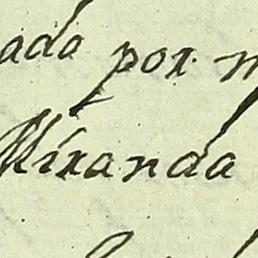 ada por m
Miranda